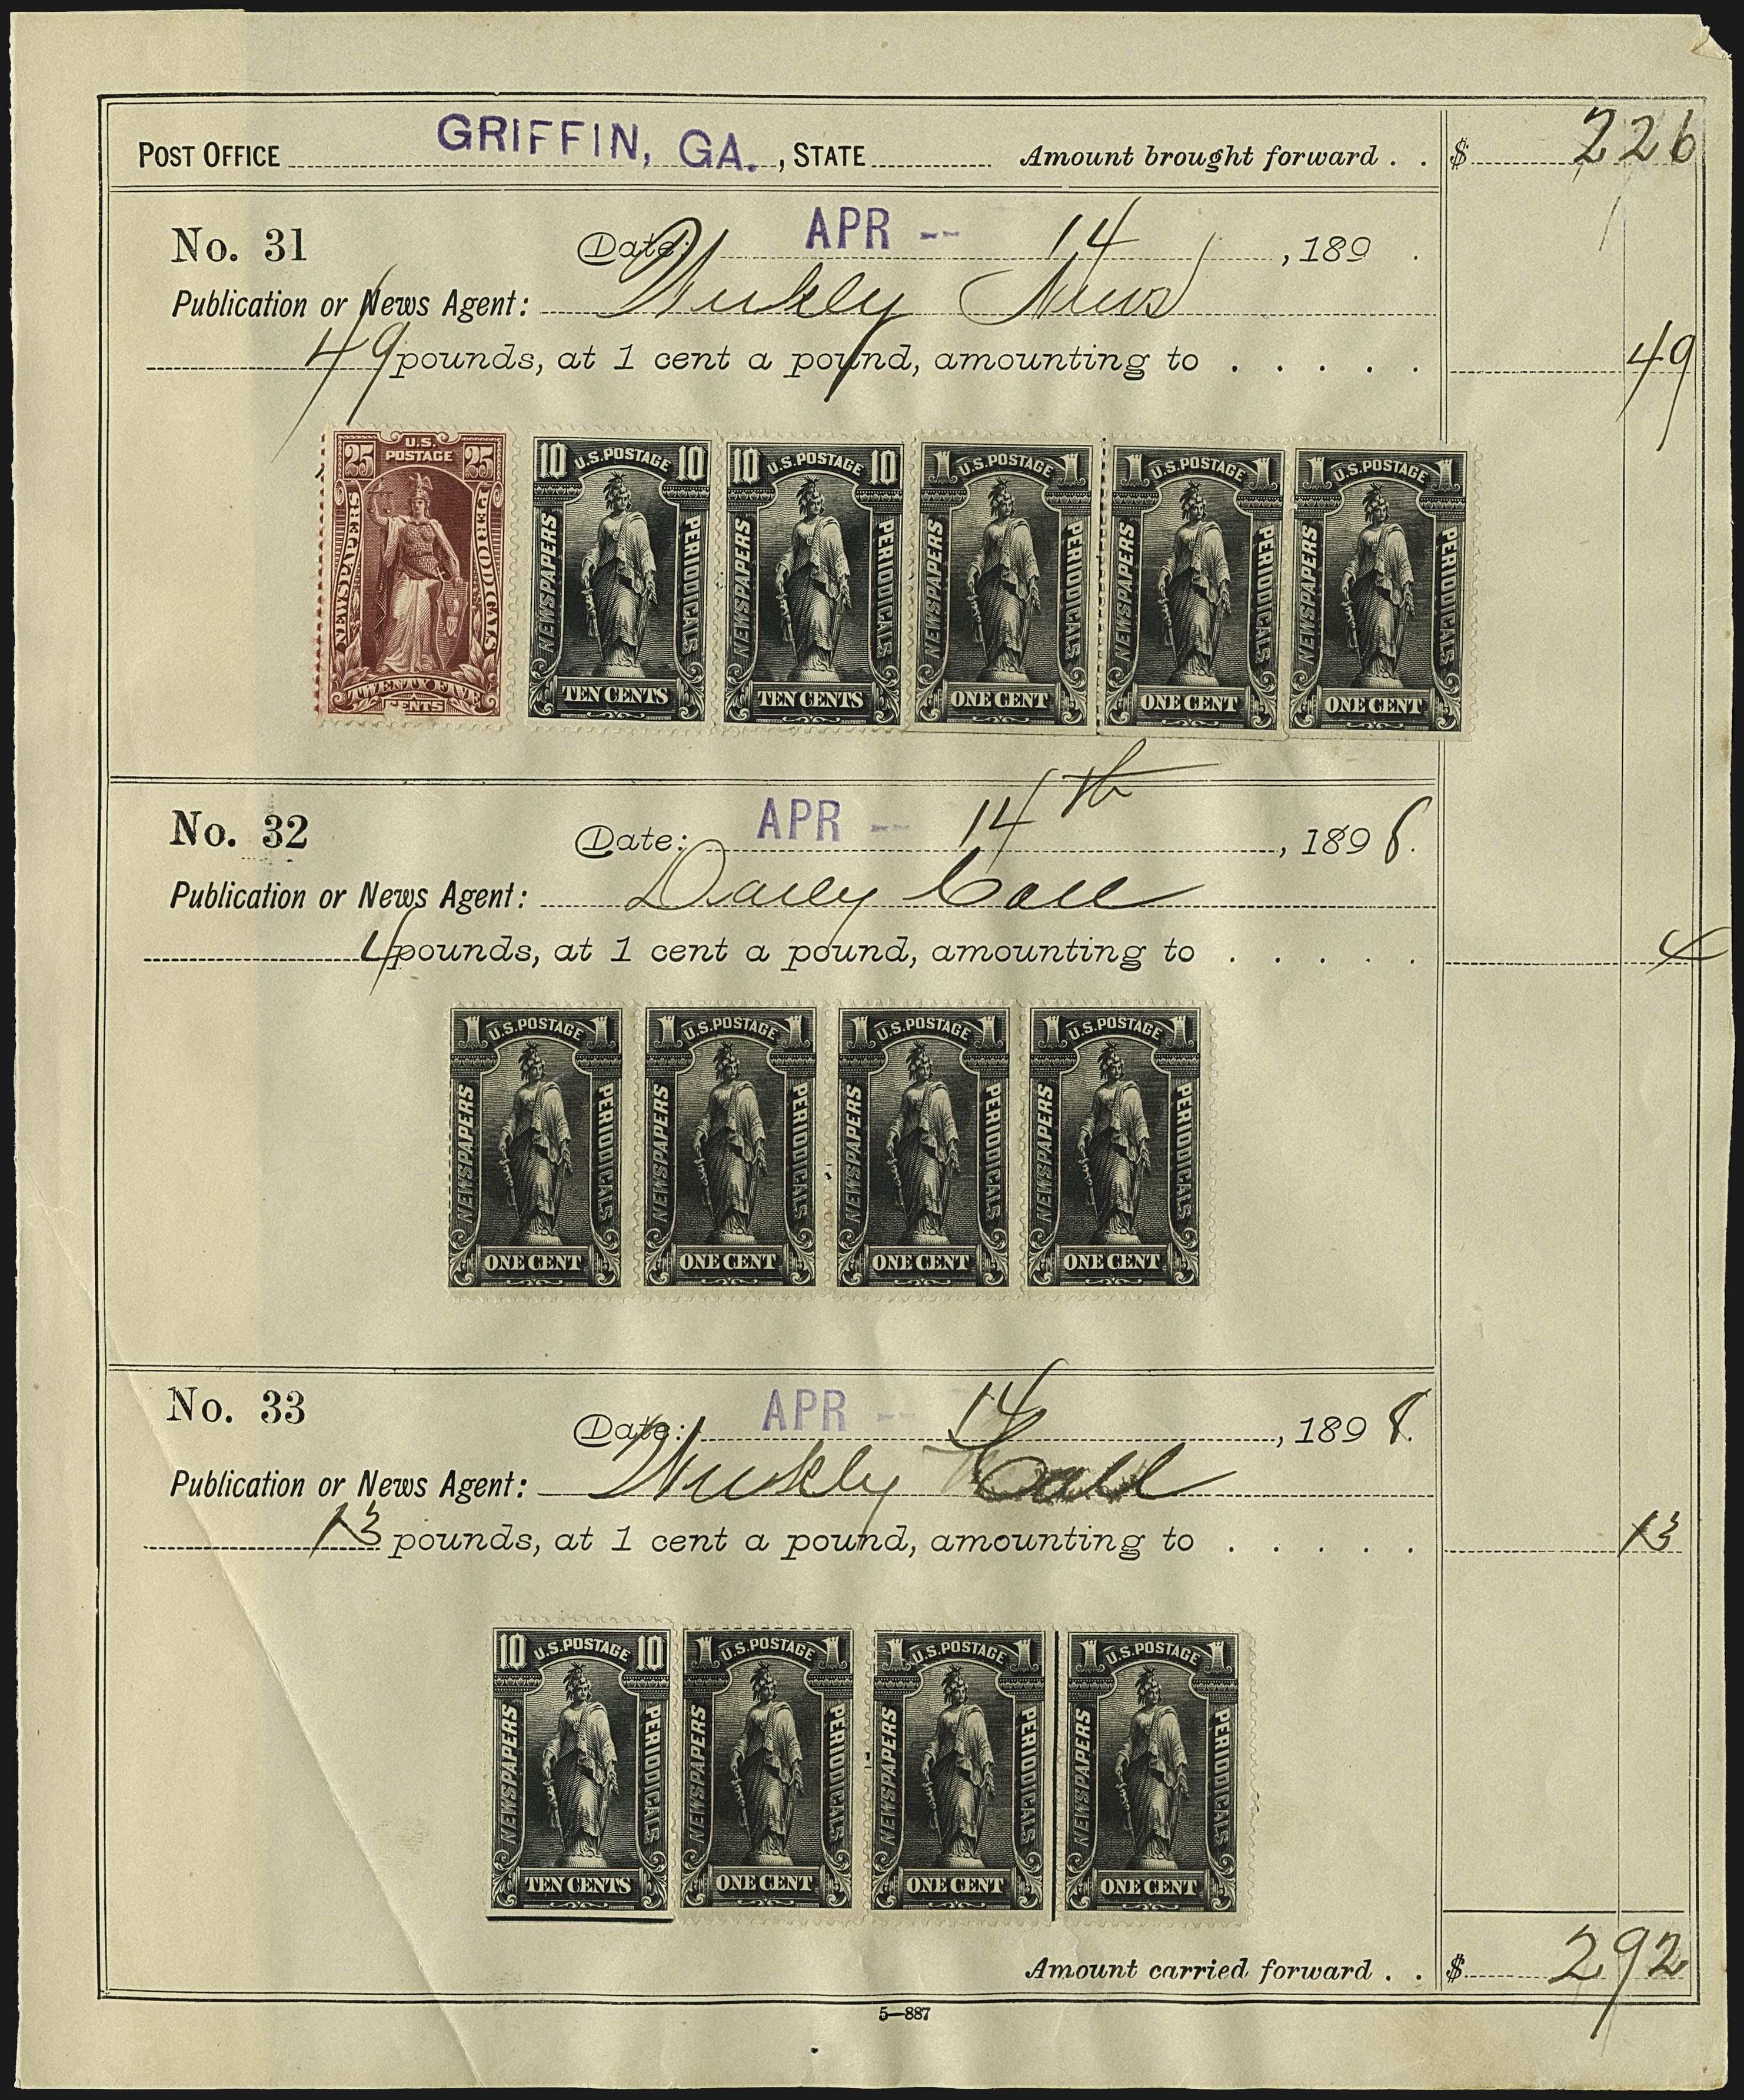 POST OFFICE GRIFFIN, GA., STATE Amount brought forward . . $ 226
No. 31 Date: APR -- 14, 189 .
Publication or News Agent: Weekly News
49 pounds, at 1 cent a pound, amounting to . . . . . 49
25 U.S. POSTAGE 25 NEWSPAPERS PERIODICALS TWENTY FIVE CENTS
10 U.S. POSTAGE 10 NEWSPAPERS PERIODICALS TEN CENTS
10 U.S. POSTAGE 10 NEWSPAPERS PERIODICALS TEN CENTS
1 U.S. POSTAGE 1 NEWSPAPERS PERIODICALS ONE CENT
1 U.S. POSTAGE 1 NEWSPAPERS PERIODICALS ONE CENT
1 U.S. POSTAGE 1 NEWSPAPERS PERIODICALS ONE CENT
No. 32 Date: APR -- 14th, 1898.
Publication or News Agent: Daily Call
4 pounds, at 1 cent a pound, amounting to . . . . . 4
1 U.S. POSTAGE 1 NEWSPAPERS PERIODICALS ONE CENT
1 U.S. POSTAGE 1 NEWSPAPERS PERIODICALS ONE CENT
1 U.S. POSTAGE 1 NEWSPAPERS PERIODICALS ONE CENT
1 U.S. POSTAGE 1 NEWSPAPERS PERIODICALS ONE CENT
No. 33 Date: APR -- 14, 1898.
Publication or News Agent: Weekly Call
13 pounds, at 1 cent a pound, amounting to . . . . . 13
10 U.S. POSTAGE 10 NEWSPAPERS PERIODICALS TEN CENTS
1 U.S. POSTAGE 1 NEWSPAPERS PERIODICALS ONE CENT
1 U.S. POSTAGE 1 NEWSPAPERS PERIODICALS ONE CENT
1 U.S. POSTAGE 1 NEWSPAPERS PERIODICALS ONE CENT
Amount carried forward . . $ 292
5—887